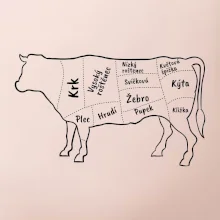 Krk
Vysoký
roštěnec
Nízký
roštěnec
Květová
špička
Svíčková
Kýta
Žebro
Plec
Hrudí
Pupek
Kližka